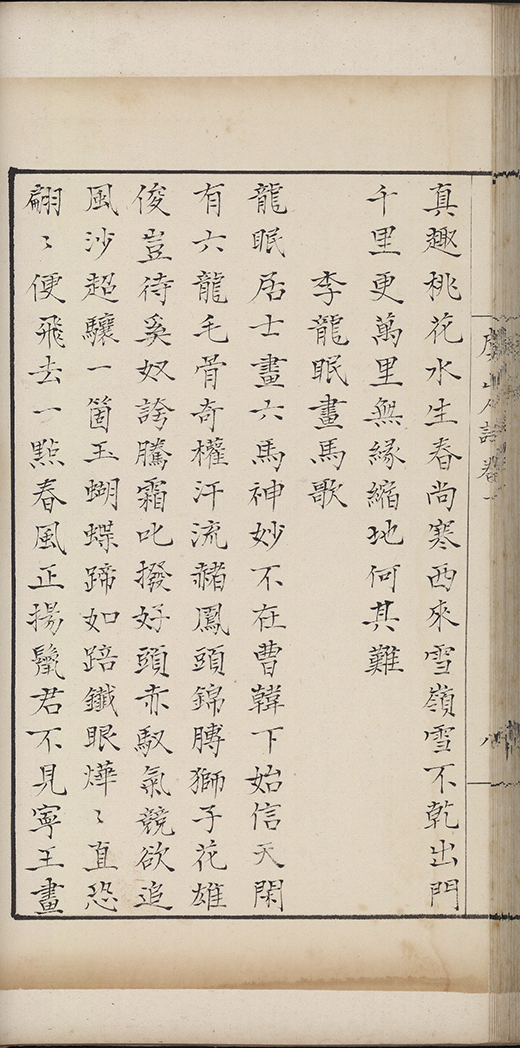 真趣桃花水生春尚寒西來雪嶺雪不乾出門
千里更萬里無緣縮地何其難
李龍眠畫馬歌
龍眠居士畫六馬神妙不在曹韓下始信天閑
有六龍毛骨奇權汗流赭鳳頭錦膊獅子花雄
俊豈待奚奴誇騰霜叱撥好頭赤馭氣競欲追
風沙超驤一箇玉蝴蝶蹄如踣鐵眼燁〻直恐
翩〻便飛去一點春風正揚鬣君不見寧王畫
卷一
八